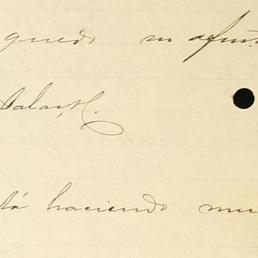 quedo su afmo.
Palau, C.
tá haciendo mu